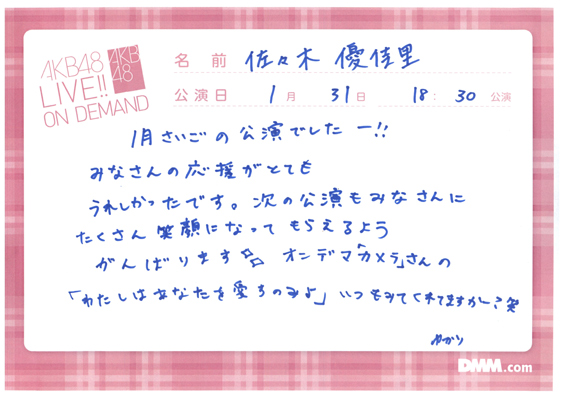 AKB48
LIVE!!
ON DEMAND
AKB
48
名 前 佐々木 優佳里
公演日 1 月 31 日 18: 30 公演
1月さいごの公演でしたー!!
みなさんの応援がとても
うれしかったです。次の公演もみなさんに
たくさん笑顔になってもらえるよう
がんばります オンデマ「カメラ」さんの
いつもみてくれてますかー?笑
ゆかり
DMM.com